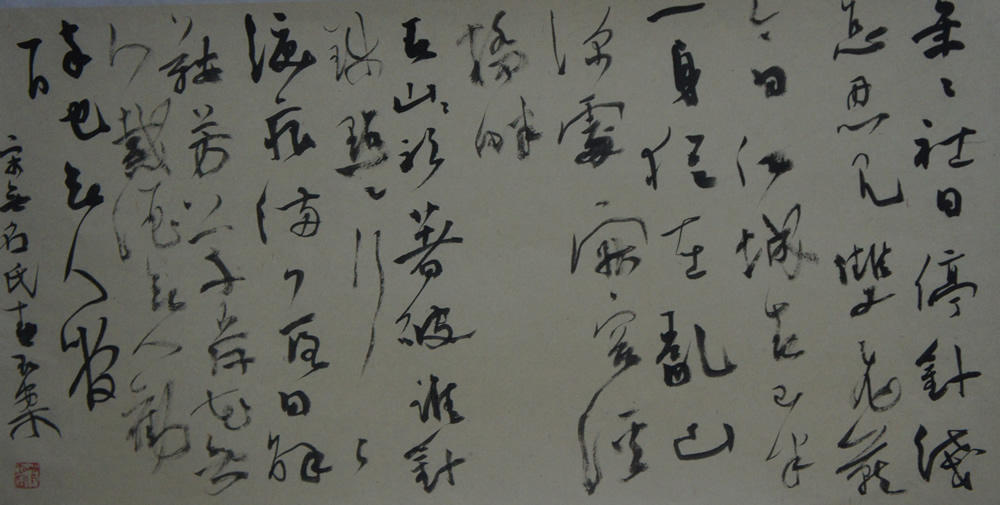 年〻社日停針綫
怎忍見雙飛燕
今日江城春已半
一身猶在亂山
深處寂寞溪
橋畔
春衫著破誰針
綫點〻行〻
淚痕滿落日解
鞍芳草岸花無
人戴酒無人勸
醉也無人管
宋無名氏青玉案